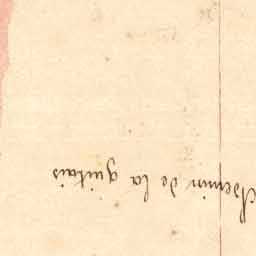 Chemin de la guitais